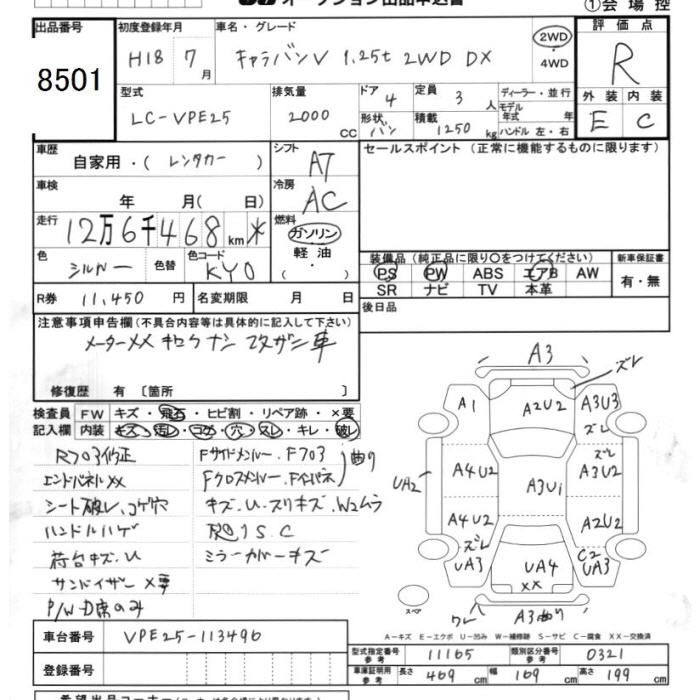 オークション出品申込書
①会場控
出品番号
8501
初度登録年月
H18 7月
車名・グレード
キャラバンV 1.25t 2WD DX
2WD
・
4WD
評価点
R
外装 内装
E C
型式
LC-VPE25
排気量
2000 CC
ドア 4
形状 バン
定員 3人
積載 1250 kg
ディーラー・並行
モデル年式 年
ハンドル 左・右
車歴
自家用・(レンタカー)
シフト
AT
セールスポイント(正常に機能するものに限ります)
車検
年 月( 日)
冷房
AC
走行
12万6千468km*
燃料
ガソリン
軽油
・( )
色
シルバー
色替
色コード
KY0
装備品(純正品に限り○をつけてください)
PS PW ABS エアB AW
SR ナビ TV 本革
新車保証書
有・無
R券 11,450円
名変期限 月 日
後日品
注意事項申告欄(不具合内容等は具体的に記入して下さい)
メーターXX キロクナシ 改ザン車
修復歴 有〔箇所 〕
検査員記入欄
FW キズ・飛石・ヒビ割・リペア跡・×要
内装 キズ・汚レ・コゲ・穴・スレ・キレ・破レ
R703修正
エンドパネルXX
シート破レ、コゲ穴
ハンドルハゲ
荷台キズ.U
サンドイザー×要
P/W D席のみ
Fサイドメンバー.F703
Fクロスメンバー.Fインパネ
曲り
キズ.U.スリキズ.W2ムラ
S.C
ミラーカバーキズ
A3
ズレ
A1
A2U2
A3U3
ズレ
UA2
A4U2
A3U1
ズレ
A3U2
A4U2
A2U2
ズレ
UA3
UA4
XX
C2
UA3
スペア
ワレ
A3曲り
A-キズ E-エクボ U-凹み W-補修跡 S-サビ C-腐食 XX-交換済
車台番号 VPE25-113496
登録番号
型式指定番号 参考 11165
類別区分番号 参考 0321
車庫証明用 参考 長さ 469cm 幅 169cm 高さ 199cm
希望出品コーナー